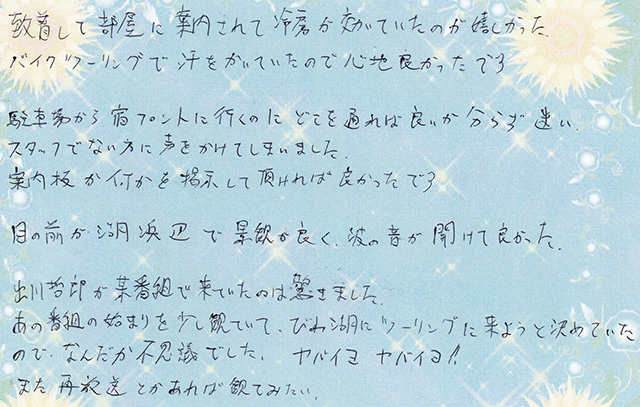 到着して部屋に案内されて冷房が効いていたのが嬉しかった。
バイクツーリングで汗をかいていたので心地良かったです
駐車場から宿フロントに行くのにどこを通れば良いか分らず迷い、
スタッフでない方に声をかけてしまいました。
案内板か何かを掲示して頂ければ良かったです
目の前が湖浜辺で景観が良く、波の音が聞けて良かった。
出川哲郎が某番組で来ていたのは驚きました。
あの番組の始まりを少し観ていて、びわ湖にツーリングに来ようと決めていた
ので、なんだか不思議でした。 ヤバイヨ ヤバイヨ!!
また再放送とかあれば観てみたい。